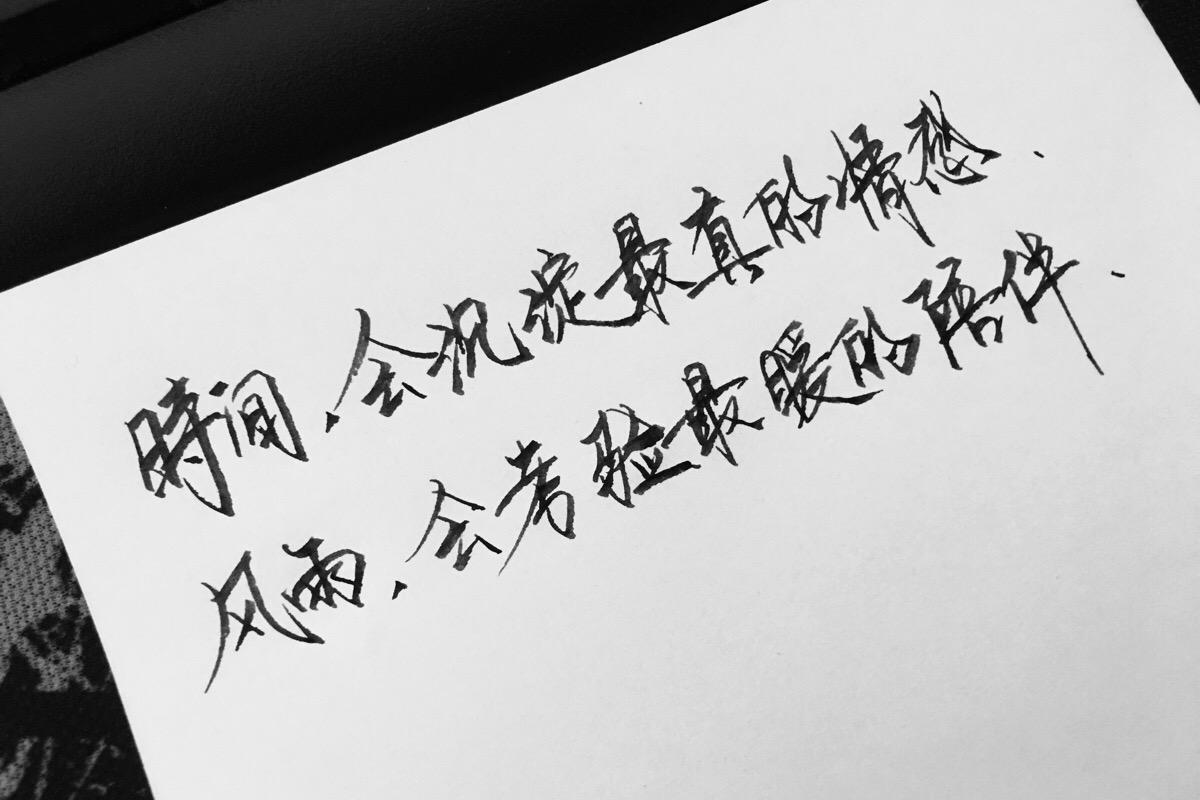 時间，会沉淀最真的情感．
风雨，会考验最暖的陪伴．